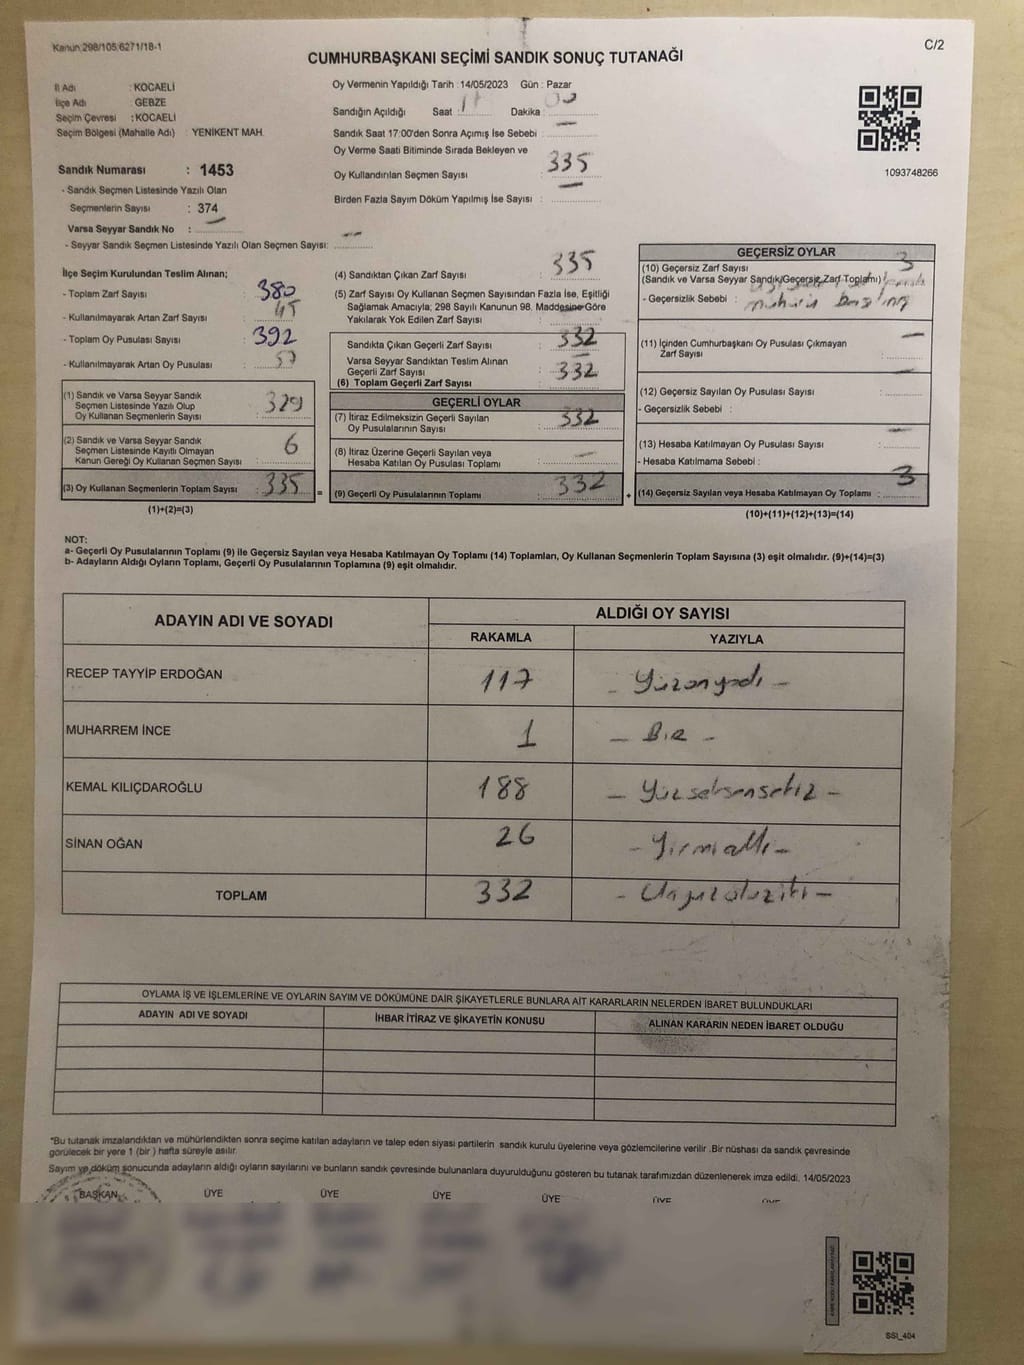 Kanun:298/105;6271/18-1
C/2
CUMHURBAŞKANI SEÇİMİ SANDIK SONUÇ TUTANAĞI
İl Adı : KOCAELİ
İlçe Adı : GEBZE
Seçim Çevresi : KOCAELİ
Seçim Bölgesi (Mahalle Adı) : YENİKENT MAH.
Sandık Numarası : 1453
- Sandık Seçmen Listesinde Yazılı Olan
Seçmenlerin Sayısı : 374
Varsa Seyyar Sandık No : —
- Seyyar Sandık Seçmen Listesinde Yazılı Olan Seçmen Sayısı: —
Oy Vermenin Yapıldığı Tarih : 14/05/2023 Gün : Pazar
Sandığın Açıldığı Saat : 17 Dakika 00
Sandık Saat 17:00'den Sonra Açımış İse Sebebi : —
Oy Verme Saati Bitiminde Sırada Bekleyen ve
Oy Kullandırılan Seçmen Sayısı : 335
Birden Fazla Sayım Döküm Yapılmış İse Sayısı : —
1093748266
İlçe Seçim Kurulundan Teslim Alınan;
- Toplam Zarf Sayısı : 380
- Kullanılmayarak Artan Zarf Sayısı : 45
- Toplam Oy Pusulası Sayısı : 392
- Kullanılmayarak Artan Oy Pusulası : 57
(1) Sandık ve Varsa Seyyar Sandık
Seçmen Listesinde Yazılı Olup
Oy Kullanan Seçmenlerin Sayısı : 329
(2) Sandık ve Varsa Seyyar Sandık
Seçmen Listesinde Kayıtlı Olmayan
Kanun Gereği Oy Kullanan Seçmen Sayısı : 6
(3) Oy Kullanan Seçmenlerin Toplam Sayısı : 335
(1)+(2)=(3)
(4) Sandıktan Çıkan Zarf Sayısı : 335
(5) Zarf Sayısı Oy Kullanan Seçmen Sayısından Fazla İse, Eşitliği
Sağlamak Amacıyla; 298 Sayılı Kanunun 98. Maddesine Göre
Yakılarak Yok Edilen Zarf Sayısı : —
Sandıkta Çıkan Geçerli Zarf Sayısı : 332
Varsa Seyyar Sandıktan Teslim Alınan
Geçerli Zarf Sayısı : —
(6) Toplam Geçerli Zarf Sayısı 332
GEÇERLİ OYLAR
(7) İtiraz Edilmeksizin Geçerli Sayılan
Oy Pusulalarının Sayısı : 332
(8) İtiraz Üzerine Geçerli Sayılan veya
Hesaba Katılan Oy Pusulası Toplamı : —
= (9) Geçerli Oy Pusulalarının Toplamı : 332
GEÇERSİZ OYLAR
(10) Geçersiz Zarf Sayısı
(Sandık ve Varsa Seyyar Sandık/Geçersiz Zarf Toplamı) : 3
- Geçersizlik Sebebi :
(11) İçinden Cumhurbaşkanı Oy Pusulası Çıkmayan
Zarf Sayısı : —
(12) Geçersiz Sayılan Oy Pusulası Sayısı : —
- Geçersizlik Sebebi :
(13) Hesaba Katılmayan Oy Pusulası Sayısı : —
- Hesaba Katılmama Sebebi :
+ (14) Geçersiz Sayılan veya Hesaba Katılmayan Oy Toplamı : 3
(10)+(11)+(12)+(13)=(14)
NOT:
a- Geçerli Oy Pusulalarının Toplamı (9) ile Geçersiz Sayılan veya Hesaba Katılmayan Oy Toplamı (14) Toplamları, Oy Kullanan Seçmenlerin Toplam Sayısına (3) eşit olmalıdır. (9)+(14)=(3)
b- Adayların Aldığı Oyların Toplamı, Geçerli Oy Pusulalarının Toplamına (9) eşit olmalıdır.
ADAYIN ADI VE SOYADI ALDIĞI OY SAYISI
RAKAMLA YAZIYLA
RECEP TAYYİP ERDOĞAN 117 - Yüzonyedi -
MUHARREM İNCE 1 - Bir -
KEMAL KILIÇDAROĞLU 188 - Yüzseksensekiz -
SİNAN OĞAN 26 - Yirmialtı -
TOPLAM 332 - Üçyüzotuziki -
OYLAMA İŞ VE İŞLEMLERİNE VE OYLARIN SAYIM VE DÖKÜMÜNE DAİR ŞİKAYETLERLE BUNLARA AİT KARARLARIN NELERDEN İBARET BULUNDUKLARI
ADAYIN ADI VE SOYADI İHBAR İTİRAZ VE ŞİKAYETİN KONUSU ALINAN KARARIN NEDEN İBARET OLDUĞU
*Bu tutanak imzalandıktan ve mühürlendikten sonra seçime katılan adayların ve talep eden siyasi partilerin sandık kurulu üyelerine veya gözlemcilerine verilir .Bir nüshası da sandık çevresinde
görülecek bir yere 1 (bir ) hafta süreyle asılır.
Sayım ve döküm sonucunda adayların aldığı oyların sayılarını ve bunların sandık çevresinde bulunanlara duyurulduğunu gösteren bu tutanak tarafımızdan düzenlenerek imza edildi. 14/05/2023
BAŞKAN ÜYE ÜYE ÜYE ÜYE ÜYE ÜYE
SSI_404